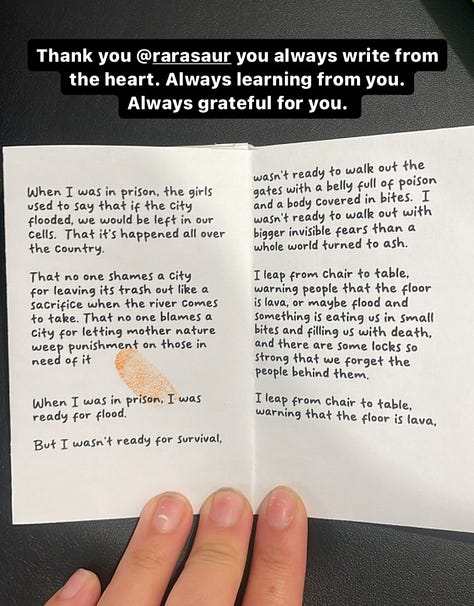 Thank you @rarasaur you always write from
the heart. Always learning from you.
Always grateful for you.
When I was in prison, the girls
used to say that if the city
flooded, we would be left in our
cells. That it's happened all over
the country.
That no one shames a city
for leaving its trash out like a
sacrifice when the river comes
to take. That no one blames a
city for letting mother nature
weep punishment on those in
need of it
When I was in prison, I was
ready for flood.
But I wasn't ready for survival,
wasn't ready to walk out the
gates with a belly full of poison
and a body covered in bites. I
wasn't ready to walk out with
bigger invisible fears than a
whole world turned to ash.
I leap from chair to table,
warning people that the floor
is lava, or maybe flood and
something is eating us in small
bites and filling us with death,
and there are some locks so
strong that we forget the
people behind them.
I leap from chair to table,
warning that the floor is lava,